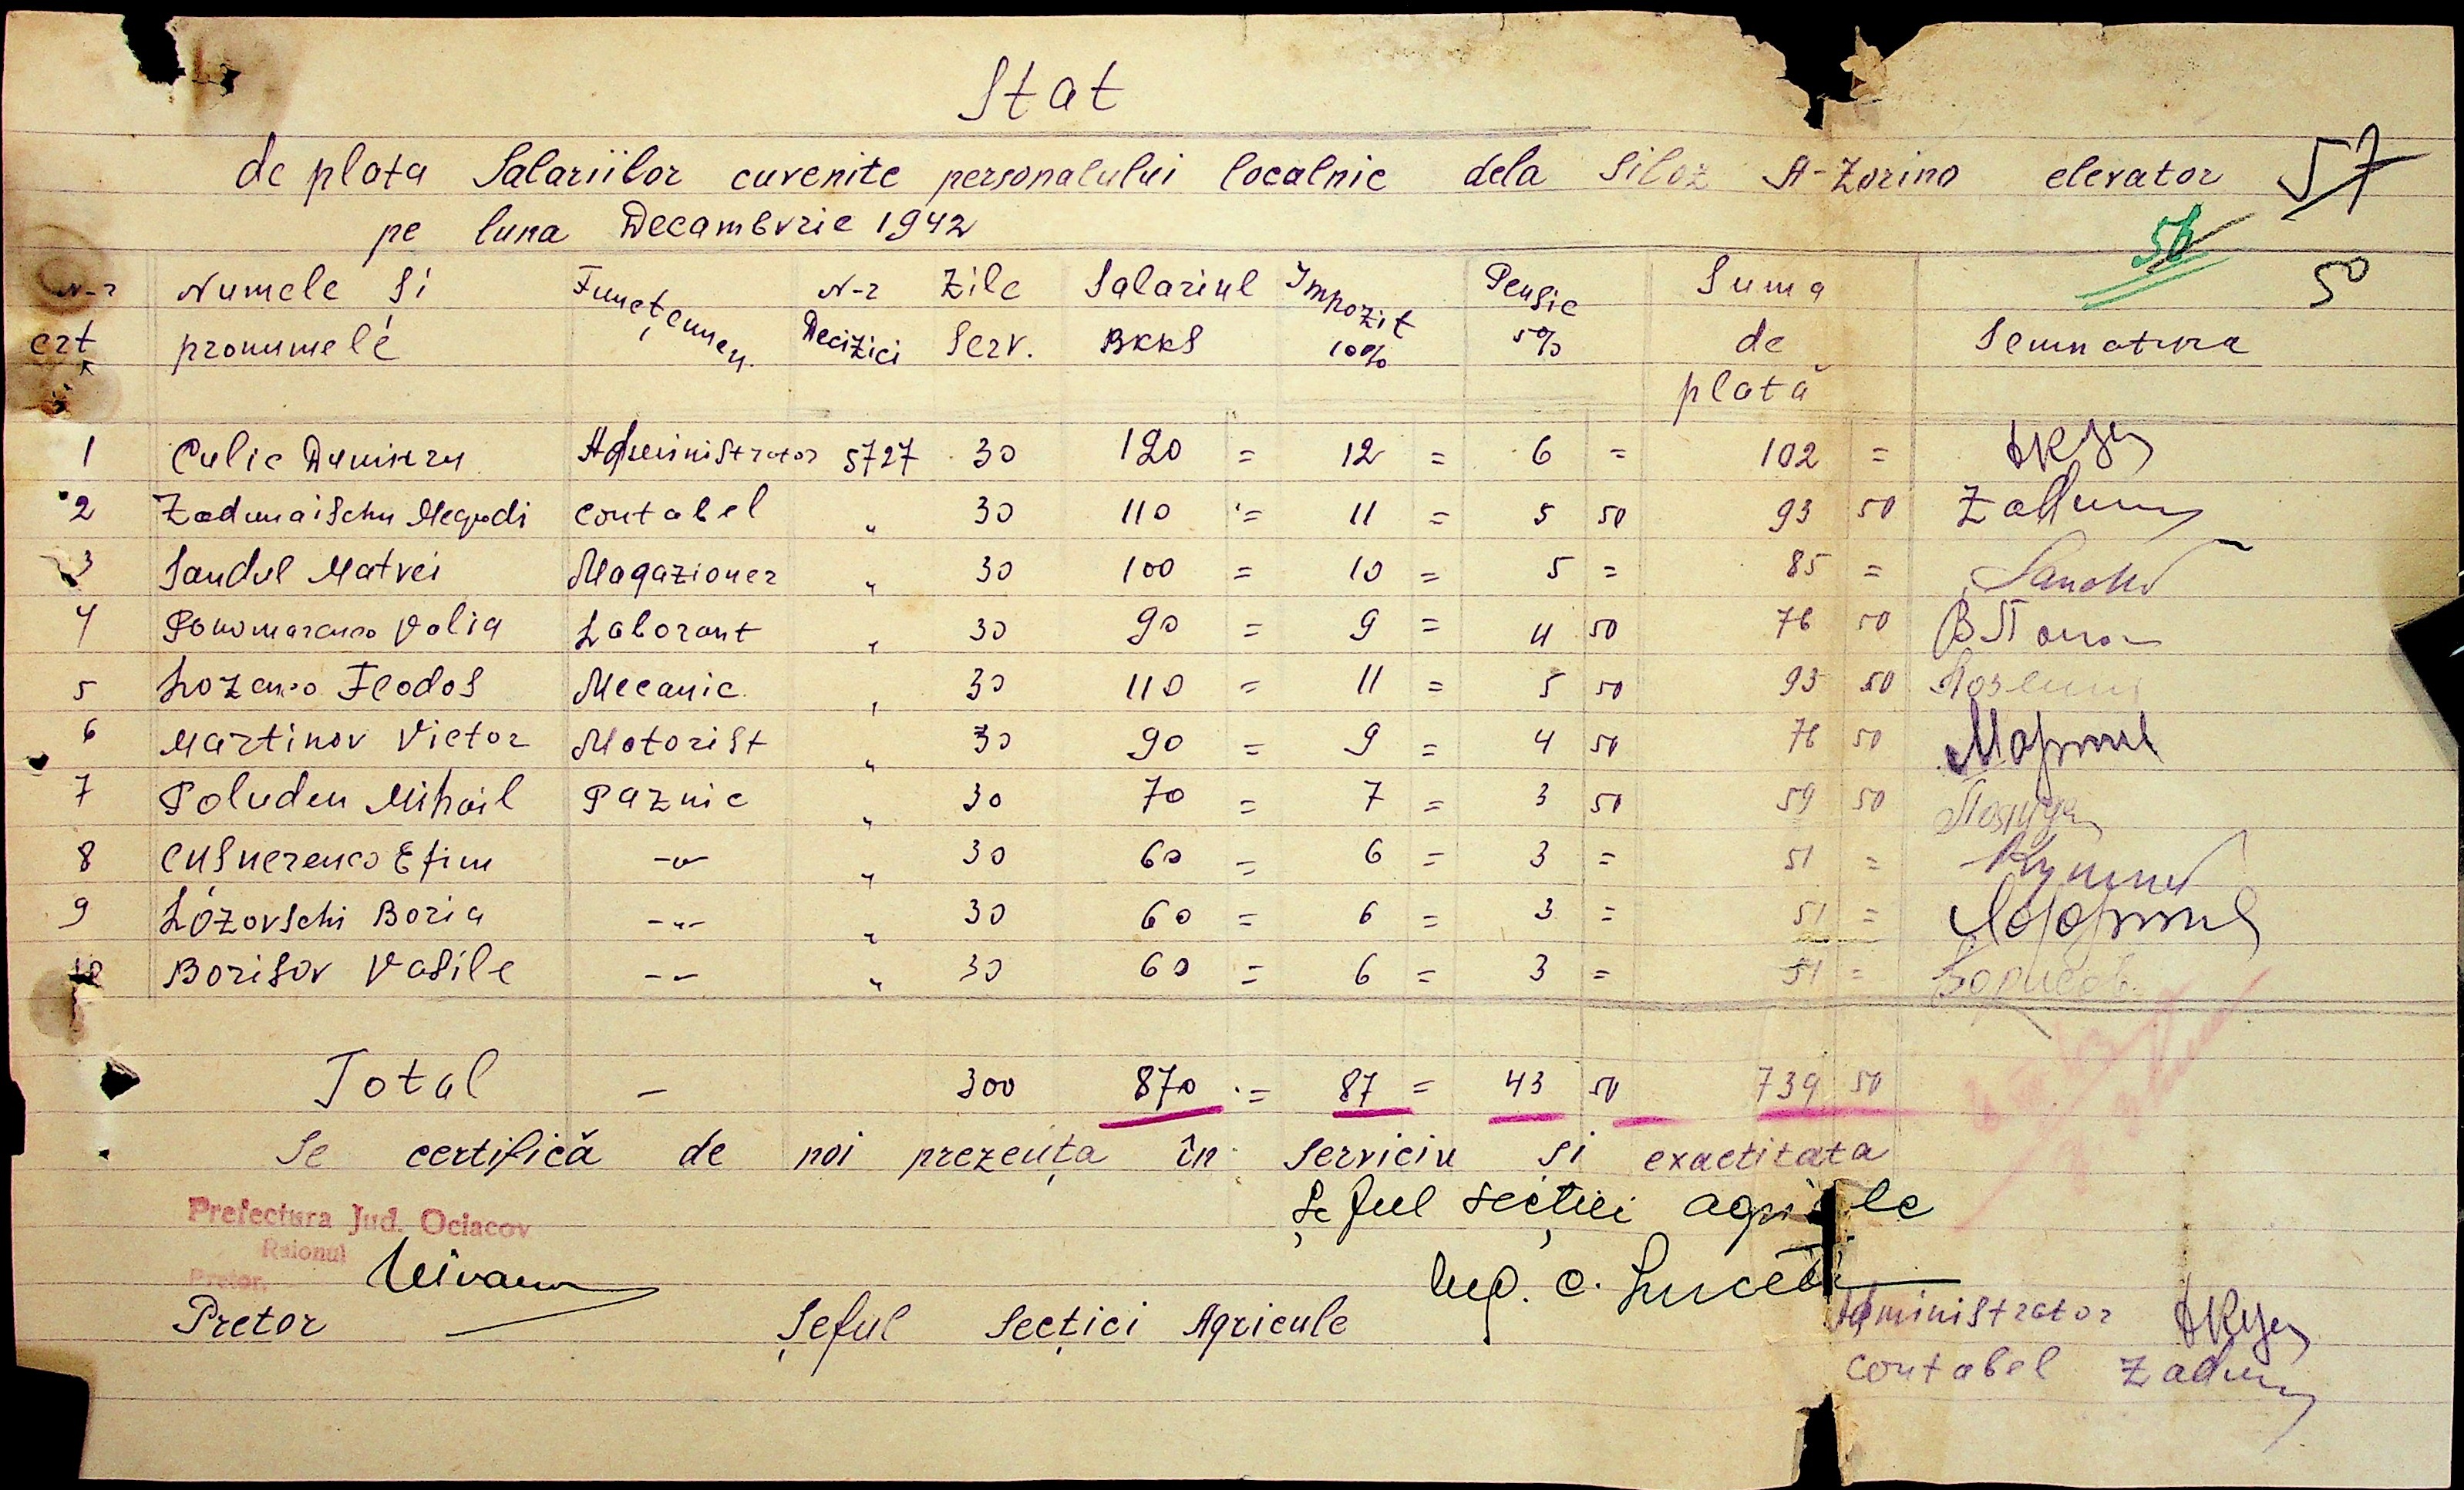 Stat
de plata Salariilor cuvenite personalului localnic dela Siloz A-Zorino elevator 57
pe luna Decambvrie 1942
56
50
N-r crt Numele și pronumele Funcț. N-r Deciziei Zile Serv. Salariul BKKS Impozit 10% Pensie 5% Suma de plată Semnatura
1 Culic Dumitru Administrator 5727 30 120 = 12 = 6 = 102 =
2 Zadunaischu Megodi contabel " 30 110 = 11 = 5 50 93 50 Zadun
3 Sandul Matvei Magazioner " 30 100 = 10 = 5 = 85 =
4 Ponomarenco Valia Laborant " 30 90 = 9 = 4 50 76 50 В Поно
5 Lozenco Feodos Mecanic " 30 110 = 11 = 5 50 93 50
6 Martinov Victor Motorist " 30 90 = 9 = 4 50 76 50
7 Poluden Mihail Paznic " 30 70 = 7 = 3 50 59 50
8 Cusnerenco Efim -"- " 30 60 = 6 = 3 = 51 =
9 Lozovschi Boria -"- " 30 60 = 6 = 3 = 51 =
10 Borisov Vasile -"- " 30 60 = 6 = 3 = 51 = Борисов
Total - 300 870 = 87 = 43 50 739 50
Se certifică de noi prezența în serviciu și exactitata
Șeful secției agricole
Prefectura Jud. Ociacov
Raionul
Pretor.
Ing. C.
Pretor Șeful Secției Agricule Administrator
contabel Zadun